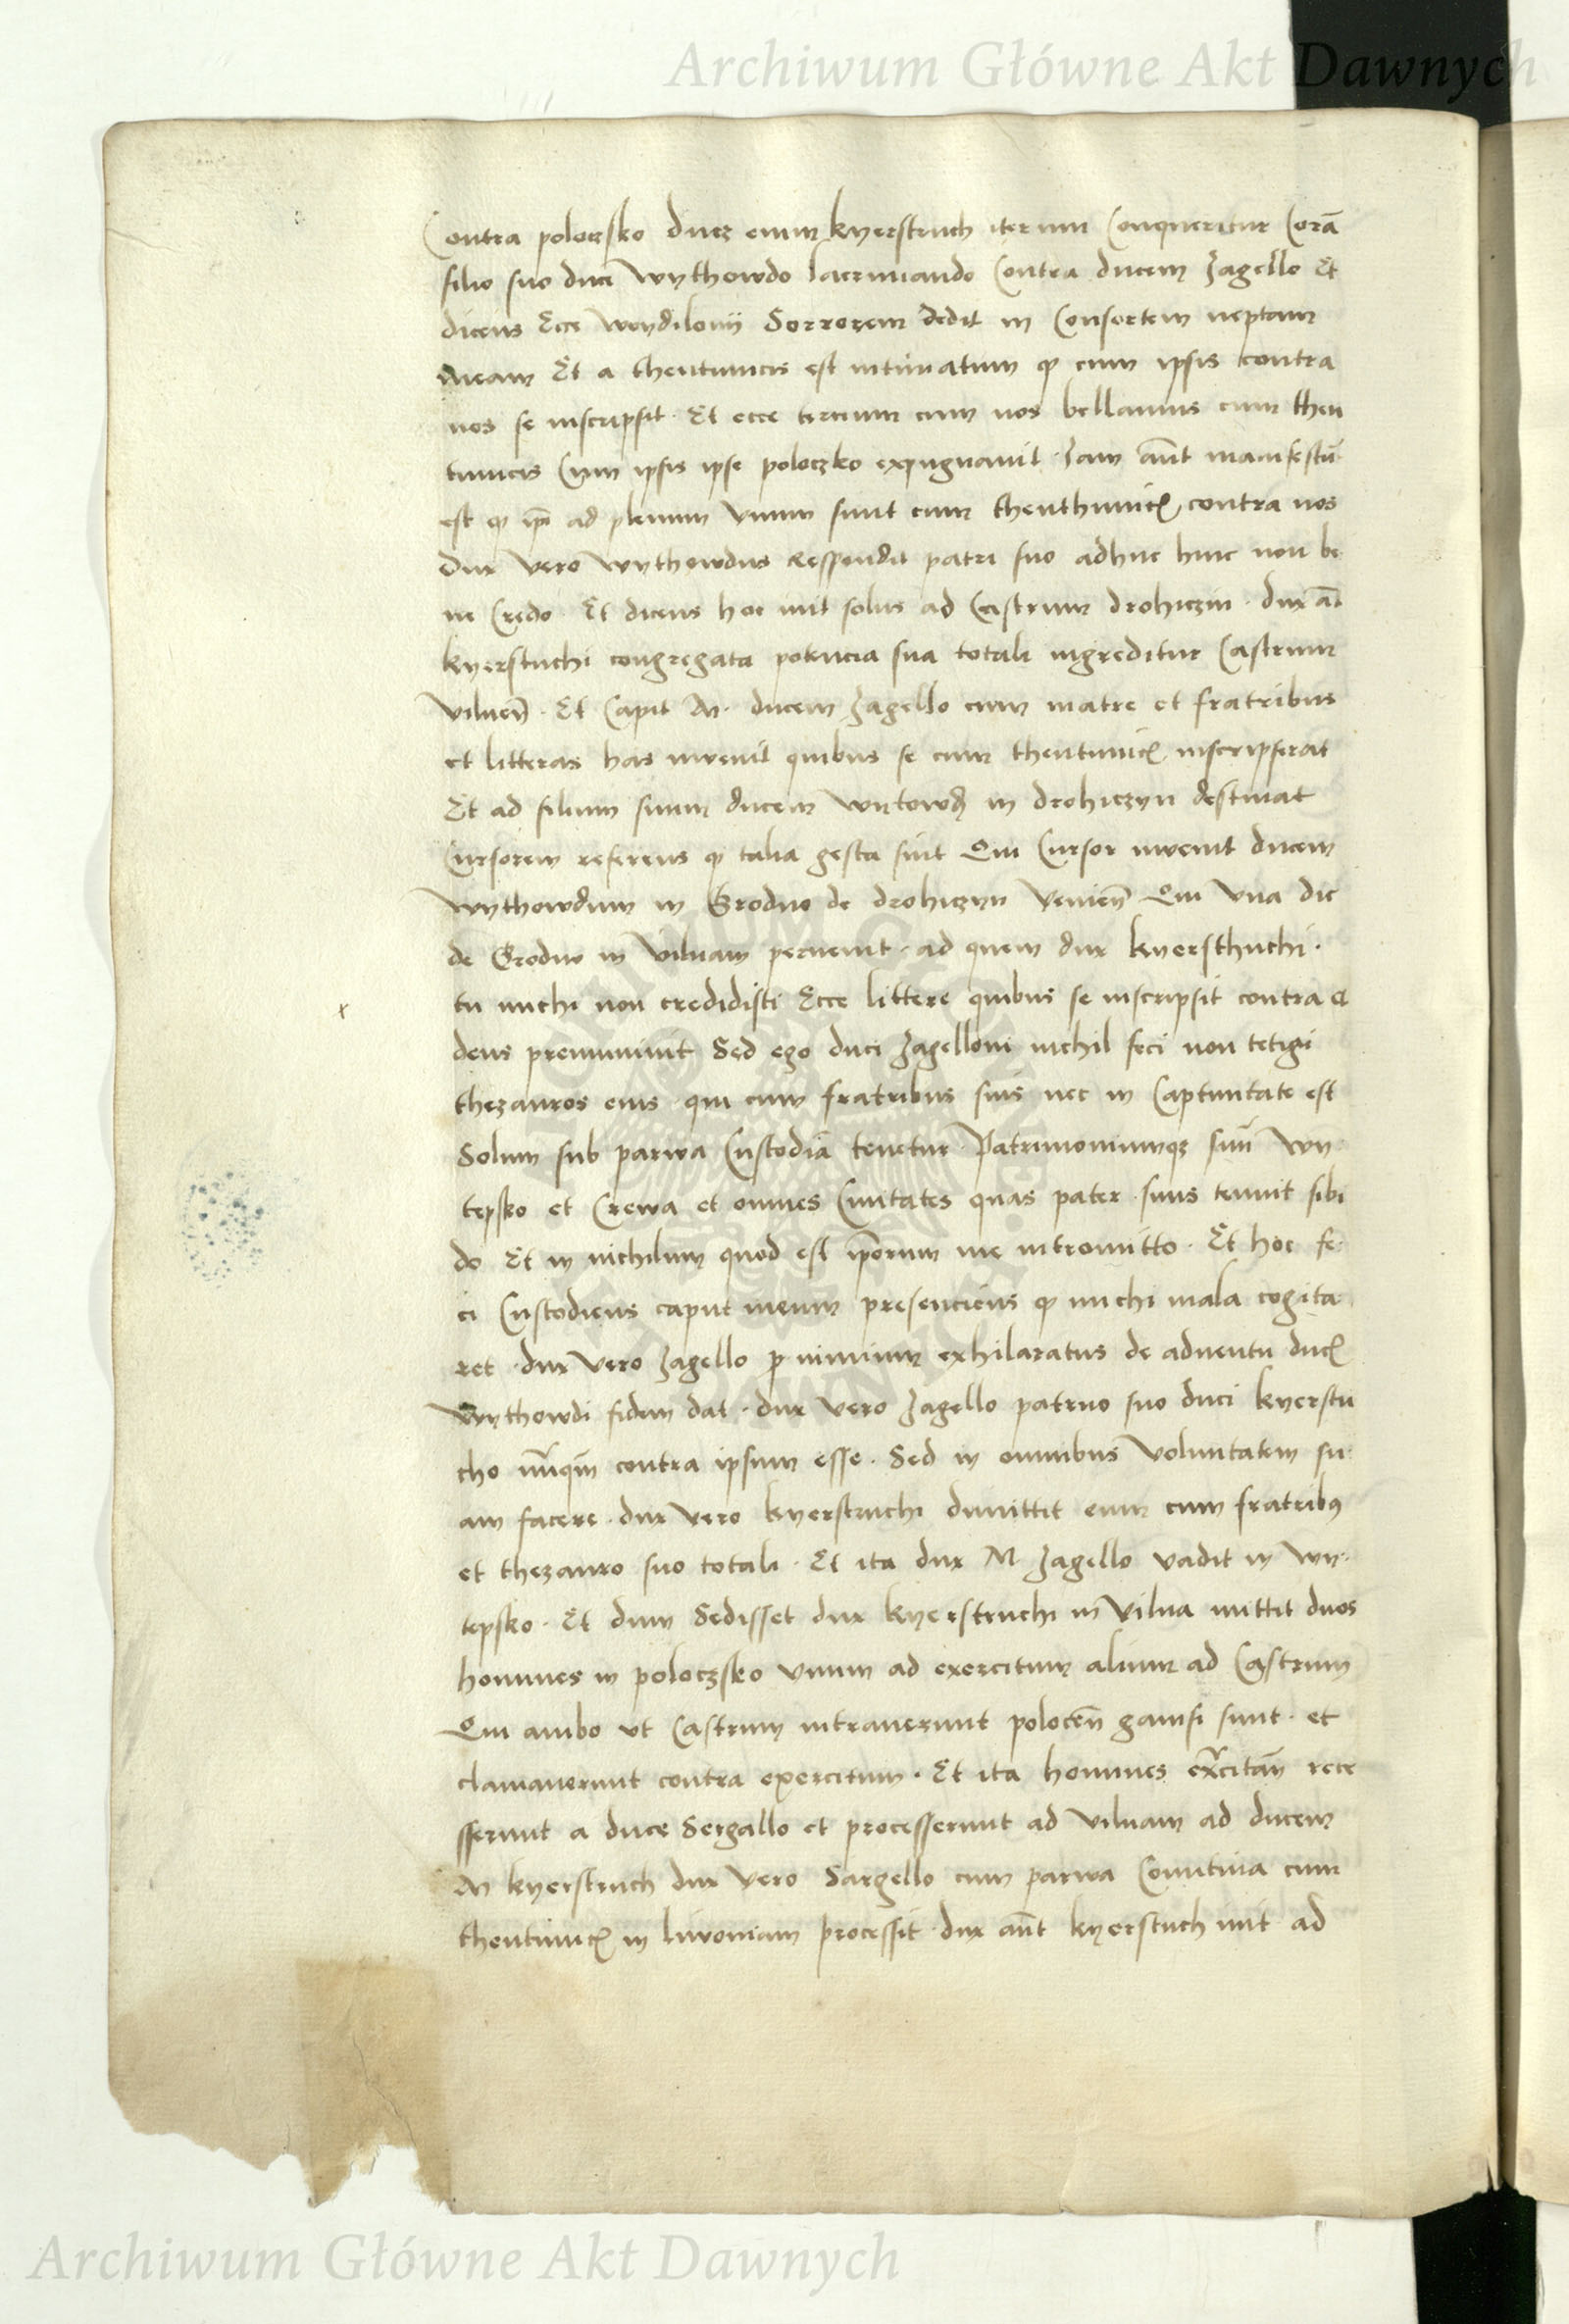 Archiwum Główne Akt Dawnych
Contra poloczsko ducz enim kyerstuch iterum Conqueritur Corā
filio suo duci wythowdo lacrimando Contra ducem Jagello Et
dicens Ecce woydilonij Sorrorem dedit in Consortem neptam
meam Et a theutunicis est intimatum ꝙ cum ipsis contra
nos se inscripsit. Et ecce tercium cum nos bellamus cum theu
tunicis Cum ipsis ipse poloczko expugnauit. Jam aūt manifestū
est ꝙ ip̄i ad plenum Vnum sunt cum theuthunicꝭ contra nos
dux vero wythowdus Respondit patri suo adhuc huic non be
ne Credo. Et dicens hoc iuit solus ad Castrum drohiczin. dux aū
kyerstuchi congregata potencia sua totali ingreditur Castrum
vilneñ. Et Capit M. ducem Jagello cum matre et fratribus
et litteras has invenit quibus se cum theutunicꝭ inscripserat
Et ad filium suum ducem wytowdū in drohiczyn destinat
Cursorem referens ꝙ talia gesta sint Qui Cursor invenit ducem
wythowdum in Grodno de drohiczyn Venieñ Qui Vna die
de Grodno in vilnam peruenit. ad quem dux kyersthuchi.
tu michi non credidisti Ecce littere quibus se inscripsit contra et
x
deus premuniuit Sed ego duci Jagelloni nichil feci non tetigi
thezauros eius qui cum fratribus suis nec in Captiuitate est
Solum sub parwa Custodia tenetur Patrimoniumqꝫ suū wy
tepsko et Crewa et omnes Ciuitates quas pater suus tenuit sibi
do Et in nichilum quod est ip̄orum me intromitto. Et hoc fe
ci Custodiens caput meum presenciens ꝙ michi mala cogita
ret. dux vero Jagello p̱ nimium exhilaratus de aduentu ducꝭ
wythowdi fidem dat. dux vero Jagello patruo suo duci kyerstu
cho nūqm̄ contra ipsum esse. Sed in omnibus voluntatem su
am facere. dux vero kyerstuchi dimittit eum cum fratribꝰ
et thezauro suo totali. Et ita dux M Jagello vadit in wy
tepsko. Et dum Sedisset dux kyerstuchi in vilna mittit duos
homines in poloczsko vnum ad exercitum alium ad Castrum
Qui ambo vt Castrum intrauerunt poloceñ gauisi sunt. et
clamauerunt contra exercitum. Et ita homines exercitañ rece
sserunt a duce Sergallo et processerunt ad vilnam ad ducem
M kyerstuch dux vero Sargello cum parwa Comitiua cum
theutunicꝭ in liuoniam processit. dux aūt kyerstuch iuit ad
Archiwum Główne Akt Dawnych